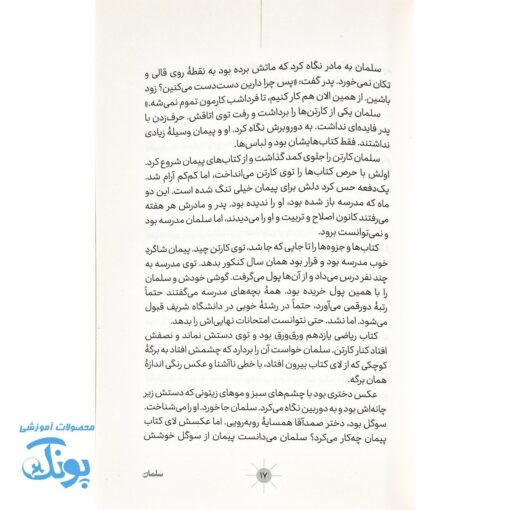 سلمان به مادر نگاه کرد که ماتش برده بود به نقطهٔ روی قالی و
تکان نمی‌خورد. پدر گفت: «پس چرا دارین دست‌دست می‌کنین؟ زود
باشین. از همین الان هم کار کنیم، تا فرداشب کارمون تموم نمی‌شه.»
سلمان یکی از کارتن‌ها را برداشت و رفت توی اتاقش. حرف‌زدن با
پدر فایده‌ای نداشت. به دوروبرش نگاه کرد. او و پیمان وسیلهٔ زیادی
نداشتند. فقط کتاب‌هایشان بود و لباس‌ها.
سلمان کارتن را جلوی کمد گذاشت و از کتاب‌های پیمان شروع کرد.
اولش با حرص کتاب‌ها را توی کارتن می‌انداخت، اما کم‌کم آرام شد.
یک‌دفعه حس کرد دلش برای پیمان خیلی تنگ شده است. این دو
ماه که مدرسه باز شده بود، او را ندیده بود. پدر و مادرش هر هفته
می‌رفتند کانون اصلاح و تربیت و او را می‌دیدند، اما سلمان مدرسه بود
و نمی‌توانست برود.
کتاب‌ها و جزوه‌ها را تا جایی که جا شد، توی کارتن چید. پیمان شاگردِ
خوب مدرسه بود و قرار بود همان سال کنکور بدهد. توی مدرسه به
چند نفر درس می‌داد و از آن‌ها پول می‌گرفت. گوشی خودش و سلمان
را با همین پول خریده بود. همهٔ بچه‌های مدرسه می‌گفتند حتماً
رتبهٔ دورقمی می‌آورد، حتماً در رشتهٔ خوبی در دانشگاه شریف قبول
می‌شود. اما نشد. حتی نتوانست امتحانات نهایی‌اش را بدهد.
کتاب ریاضی یازدهم ورق‌ورق بود و توی دستش نماند و نصفش
افتاد کنار کارتن. سلمان خواست آن را بردارد که چشمش افتاد به برگهٔ
کوچکی که از لای کتاب بیرون افتاد، با خطی ناآشنا و عکس رنگی اندازهٔ
همان برگه.
عکس دختری بود با چشم‌های سبز و موهای زیتونی که دستش زیر
چانه‌اش بود و به دوربین نگاه می‌کرد. سلمان جا خورد. او را می‌شناخت.
سوگل بود، دختر صمدآقا همسایهٔ روبه‌رویی. اما عکسش لای کتاب
پیمان چه‌کار می‌کرد؟ سلمان می‌دانست پیمان از سوگل خوشش
۱۷
سلمان
محصولات آموزشی
پونک